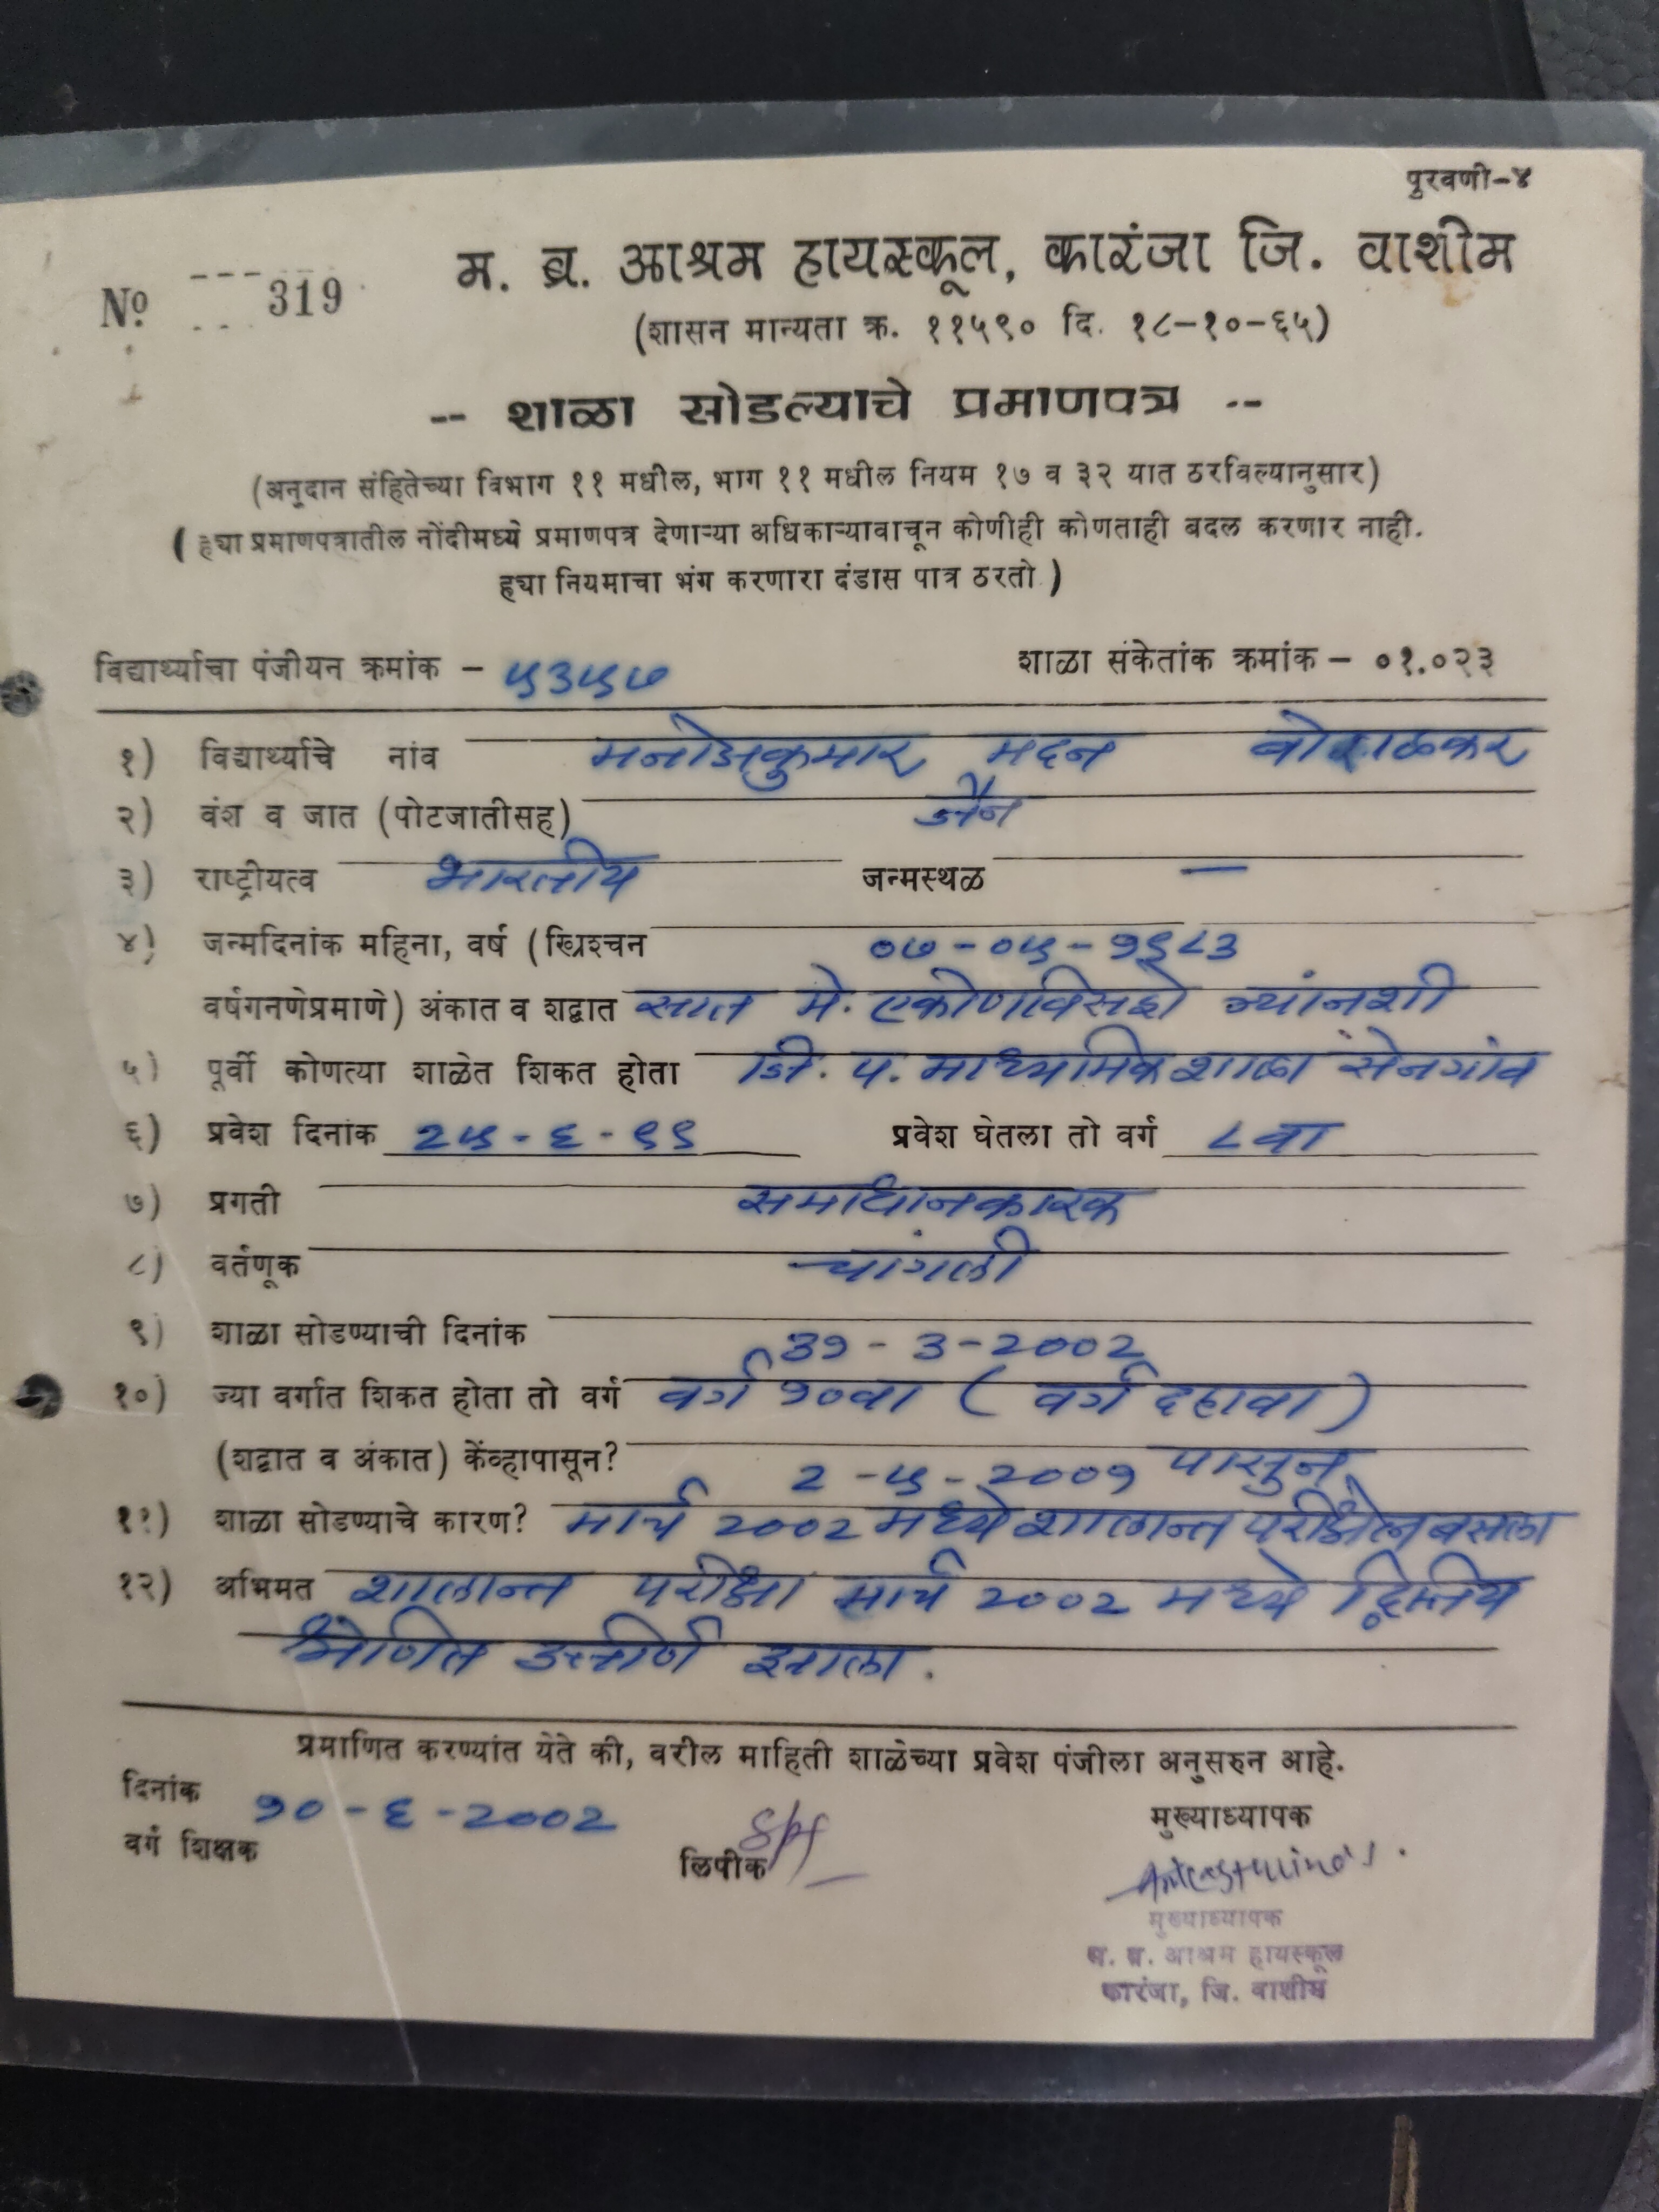 पुरवणी-४
म. ब्र. आश्रम हायस्कूल, कारंजा जि. वाशीम
Nº 319
(शासन मान्यता क्र. ११५९० दि. १८-१०-६५)
-- शाळा सोडल्याचे प्रमाणपत्र --
(अनुदान संहितेच्या विभाग ११ मधील, भाग ११ मधील नियम १७ व ३२ यात ठरविल्यानुसार)
( ह्या प्रमाणपत्रातील नोंदीमध्ये प्रमाणपत्र देणाऱ्या अधिकाऱ्यावाचून कोणीही कोणताही बदल करणार नाही.
ह्या नियमाचा भंग करणारा दंडास पात्र ठरतो )
विद्यार्थ्याचा पंजीयन क्रमांक - ५३५७ शाळा संकेतांक क्रमांक - ०१.०२३
१) विद्यार्थ्याचे नांव मनोजकुमार मदन
२) वंश व जात (पोटजातीसह) जैन
३) राष्ट्रीयत्व भारतीय जन्मस्थळ —
४) जन्मदिनांक महिना, वर्ष (ख्रिश्चन ०७-०५-१९८३
वर्षगनणेप्रमाणे) अंकात व शद्वात सात मे. एकोणविसशे त्र्यांनशी
५) पूर्वी कोणत्या शाळेत शिकत होता जि. प. माध्यमिक शाळा सेनगांव
६) प्रवेश दिनांक २५-६-९९ प्रवेश घेतला तो वर्ग ८ वा
७) प्रगती समाधानकारक
८) वर्तणूक चांगली
९) शाळा सोडण्याची दिनांक ३१-३-२००२
१०) ज्या वर्गात शिकत होता तो वर्ग वर्ग १०वा ( वर्ग दहावा )
(शद्वात व अंकात) केंव्हापासून? २-५-२००१ पासुन
११) शाळा सोडण्याचे कारण? मार्च २००२ मध्ये शालान्त परीक्षेत बसला
१२) अभिमत शालान्त परीक्षा मार्च २००२ मध्ये द्वितिय
श्रेणित उत्तीर्ण झाला.
प्रमाणित करण्यांत येते की, वरील माहिती शाळेच्या प्रवेश पंजीला अनुसरुन आहे.
दिनांक १०-६-२००२
वर्ग शिक्षक लिपीक मुख्याध्यापक
मुख्याध्यापक
म. ब्र. आश्रम हायस्कूल
कारंजा, जि. वाशीम